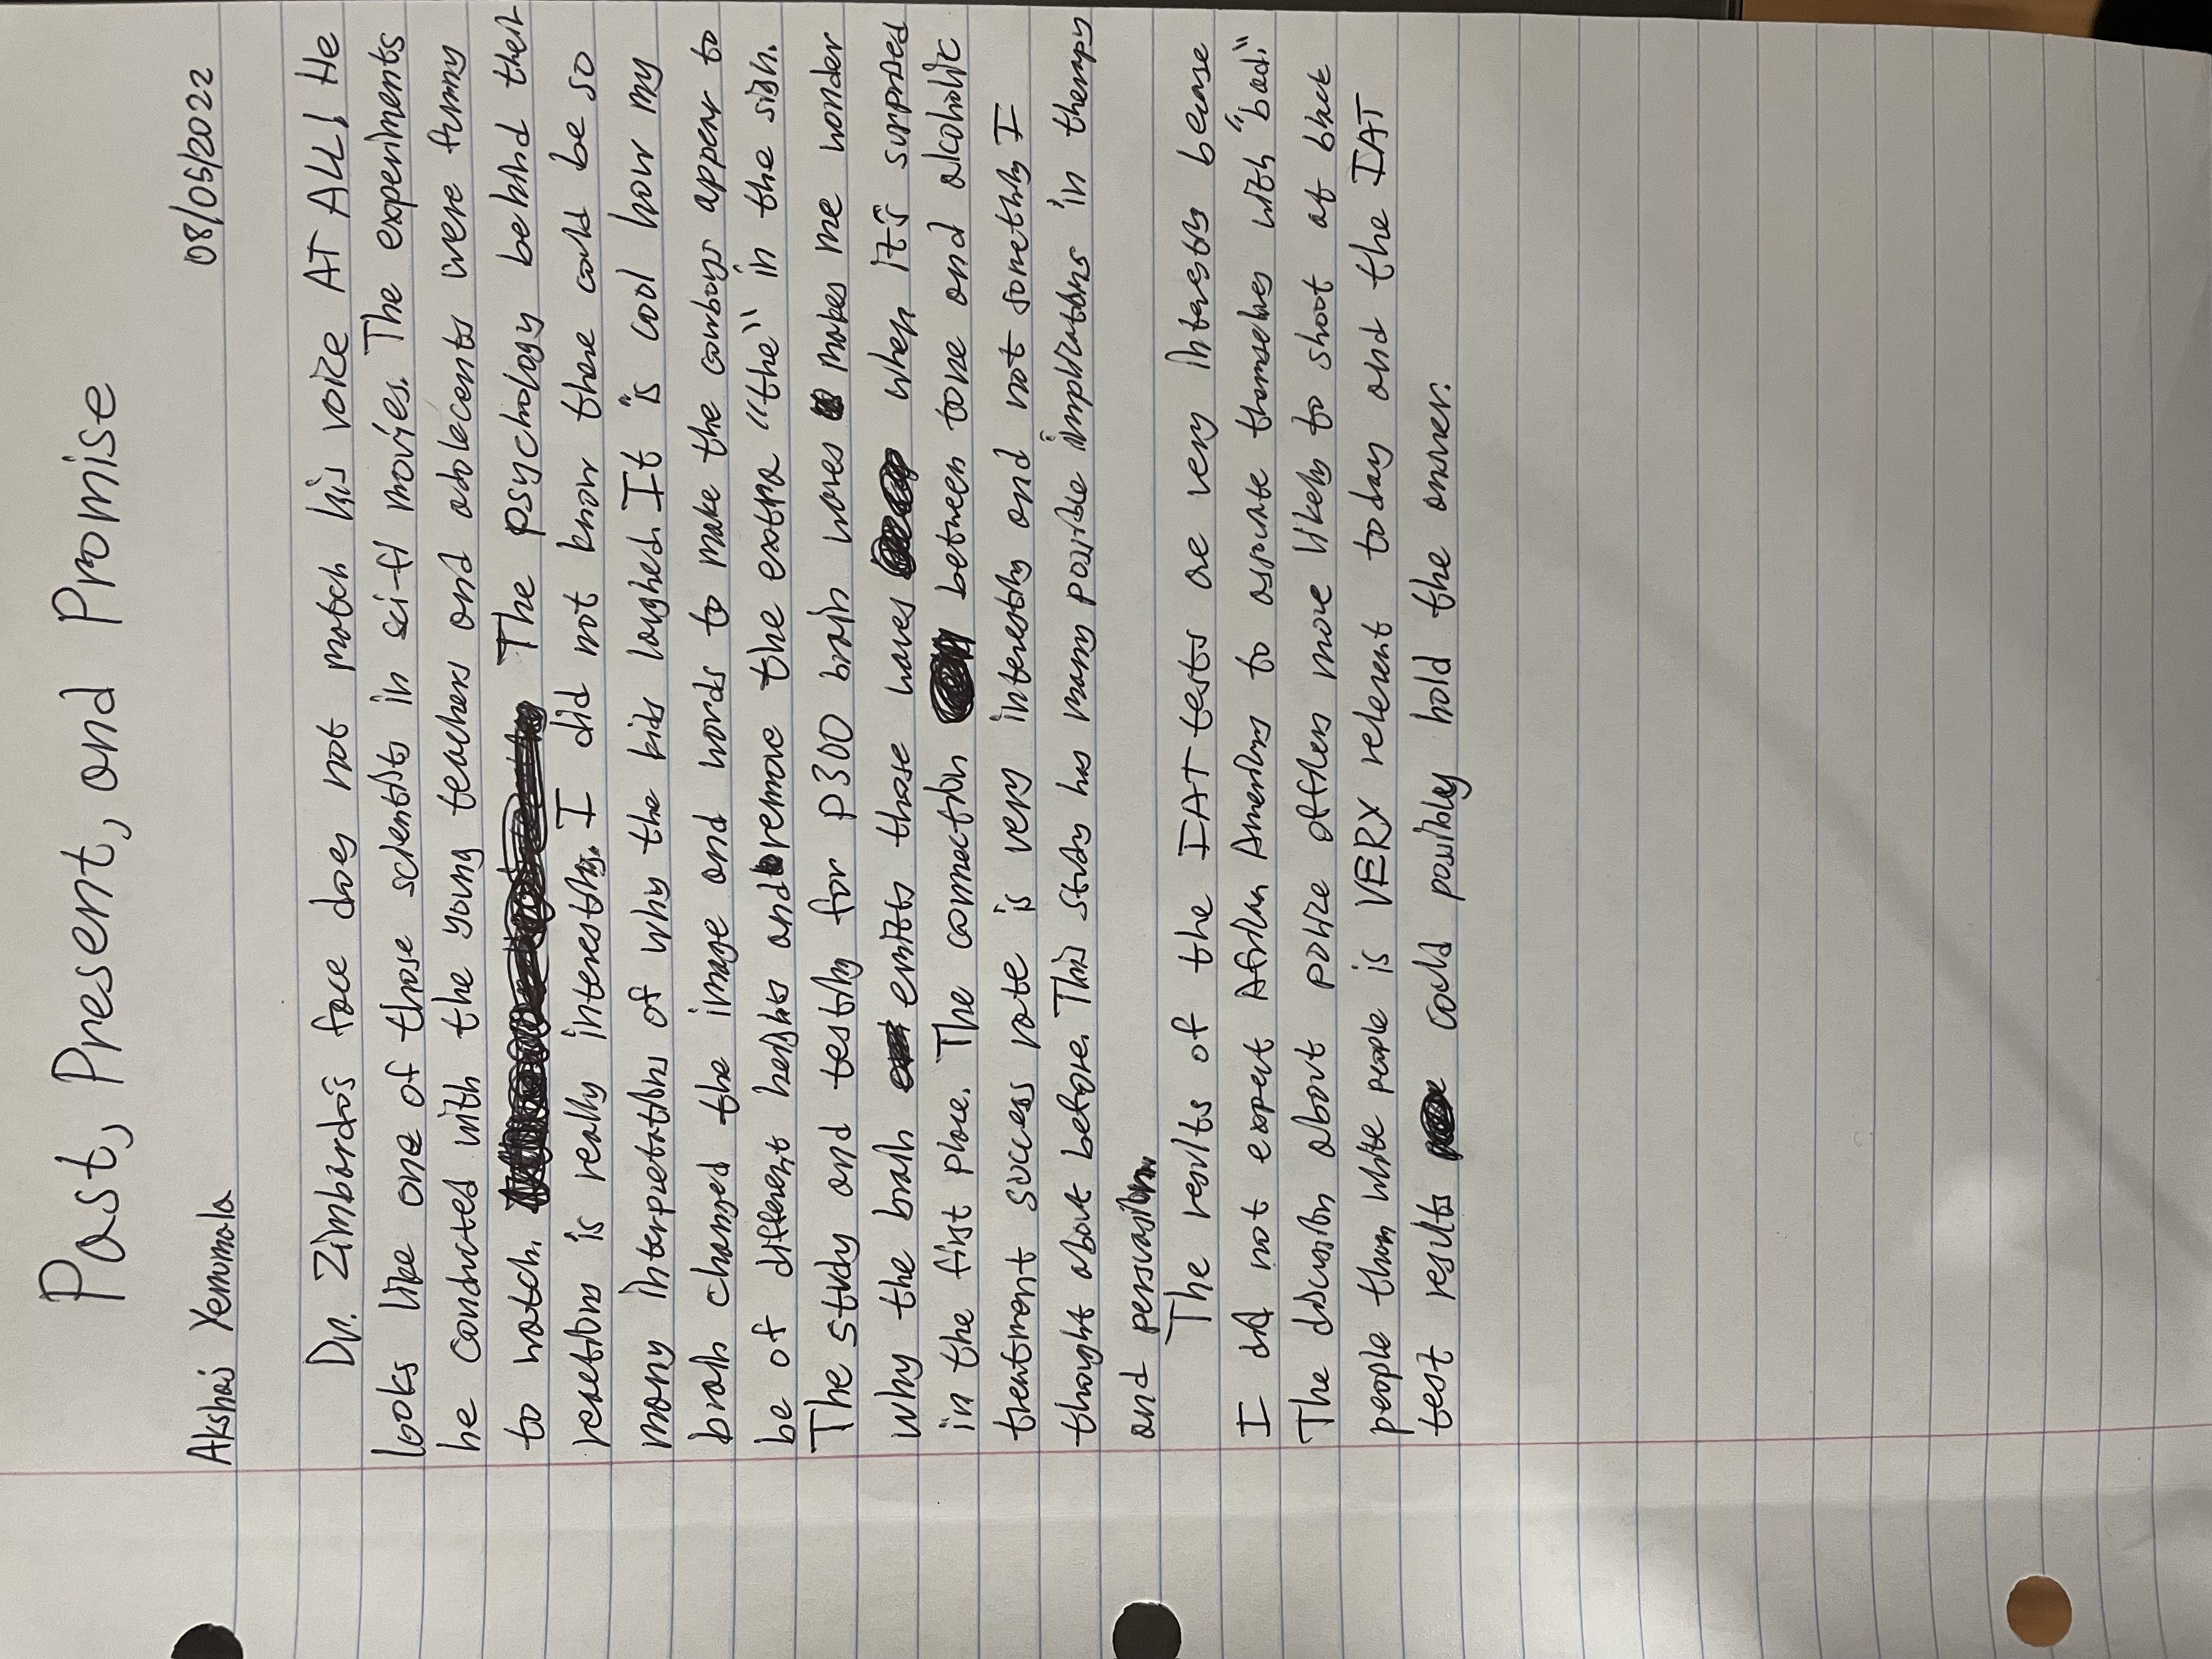 Past, Present, and Promise
Akshaj Yenumala 08/05/2022
Dr. Zimbardo's face does not match his voice AT ALL! He
looks like one of those scientists in sci-fi movies. The experiments
he conducted with the young teachers and adolecents were funny
to watch. The psychology behind their
reactions is really interesting. I did not know there could be so
many interpretations of why the kids laughed. It is cool how my
brain changed the image and words to make the cowboys appear to
be of different heights and remove the extra "the" in the sign.
The study and testing for P300 brain waves makes me wonder
why the brain emitts those waves when it's surprised
in the first place. The connection between tone and alcoholic
treatment success rate is very interesting and not something I
thought about before. This study has many possible implications in therapy
and persuasion.
The results of the IAT tests are very interesting because
I did not expect African Americans to associate themselves with "bad."
The discussion about police officers more likely to shoot at black
people than white people is VERY relevent today and the IAT
test results could possibly hold the answer.